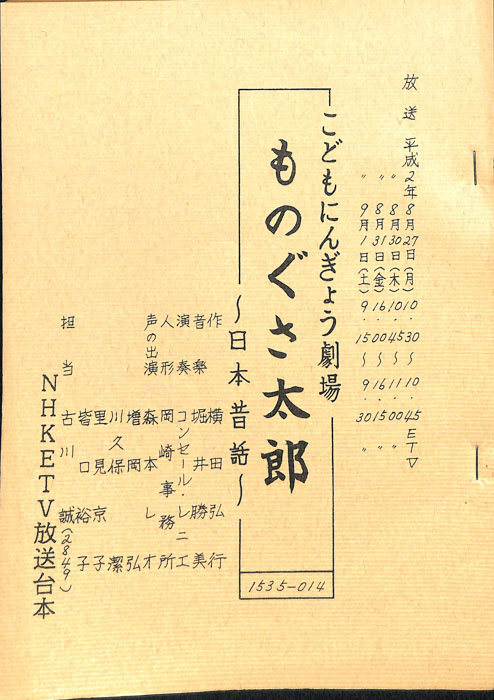 放送 平成2年8月27日(月)10.30〜10.45 ETV
〃 〃 8月30日(木)10.45〜11.00 〃
〃 〃 8月31日(金)16.00〜16.15 〃
〃 9月1日(土)9.15〜9.30 〃
こどもにんぎょう劇場
ものぐさ太郎
〜日本昔話〜
1535-014
作 横田弘行
音楽 堀井勝美
演奏 コンセール・レニエ
人形 岡崎事務所
声の出演 森本レオ
増岡弘
川久保潔
里見京子
皆口裕子
担当 古川誠(2849)
NHKETV放送台本